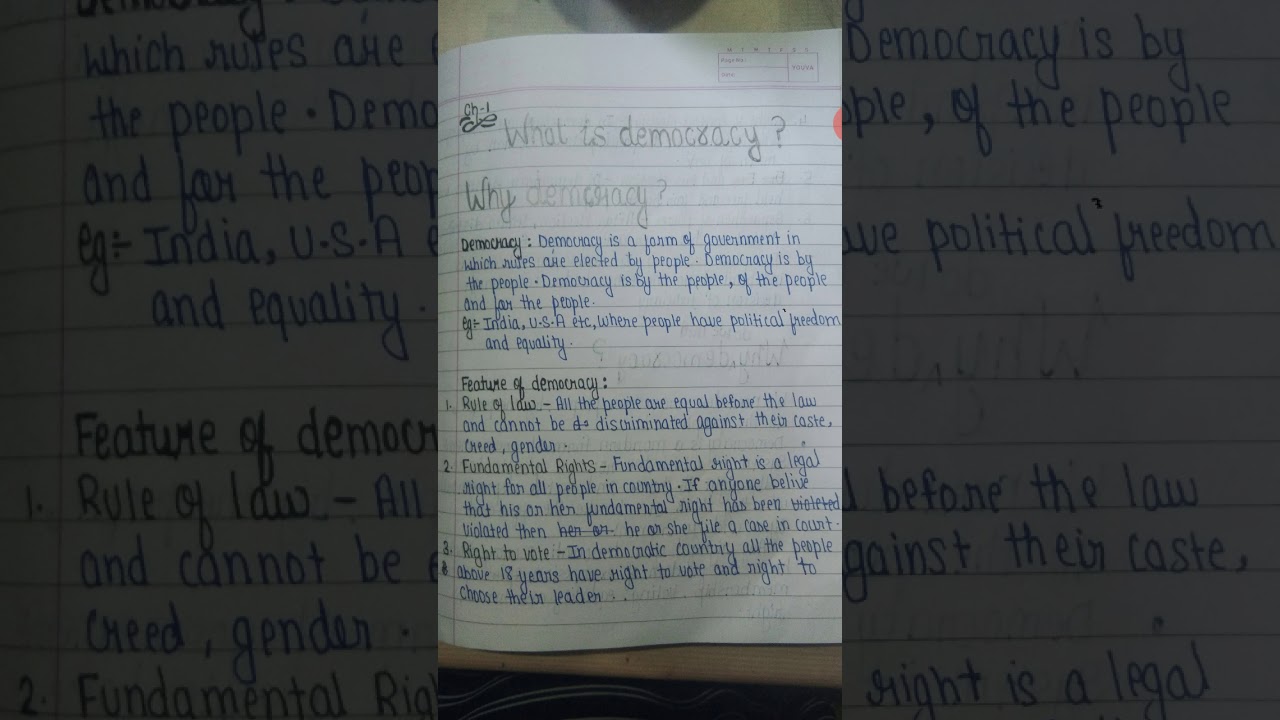 M T W T F S S
Page No.:
Date:
YOUVA
Ch-1
What is democracy?
Why democracy?
Democracy : Democracy is a form of government in
which rules are elected by people. Democracy is by
the people. Democracy is by the people, of the people
and for the people.
eg:- India, U.S.A etc, where people have political freedom
and equality.
Feature of democracy:
1. Rule of law - All the people are equal before the law
and cannot be do discriminated against their caste,
creed, gender.
2. Fundamental Rights - Fundamental right is a legal
right for all people in country. If anyone belive
that his or her fundamental right has been violeted
violated then her or he or she file a case in court.
3. Right to vote - In democratic country all the people
above 18 years have right to vote and right to
choose their leader.